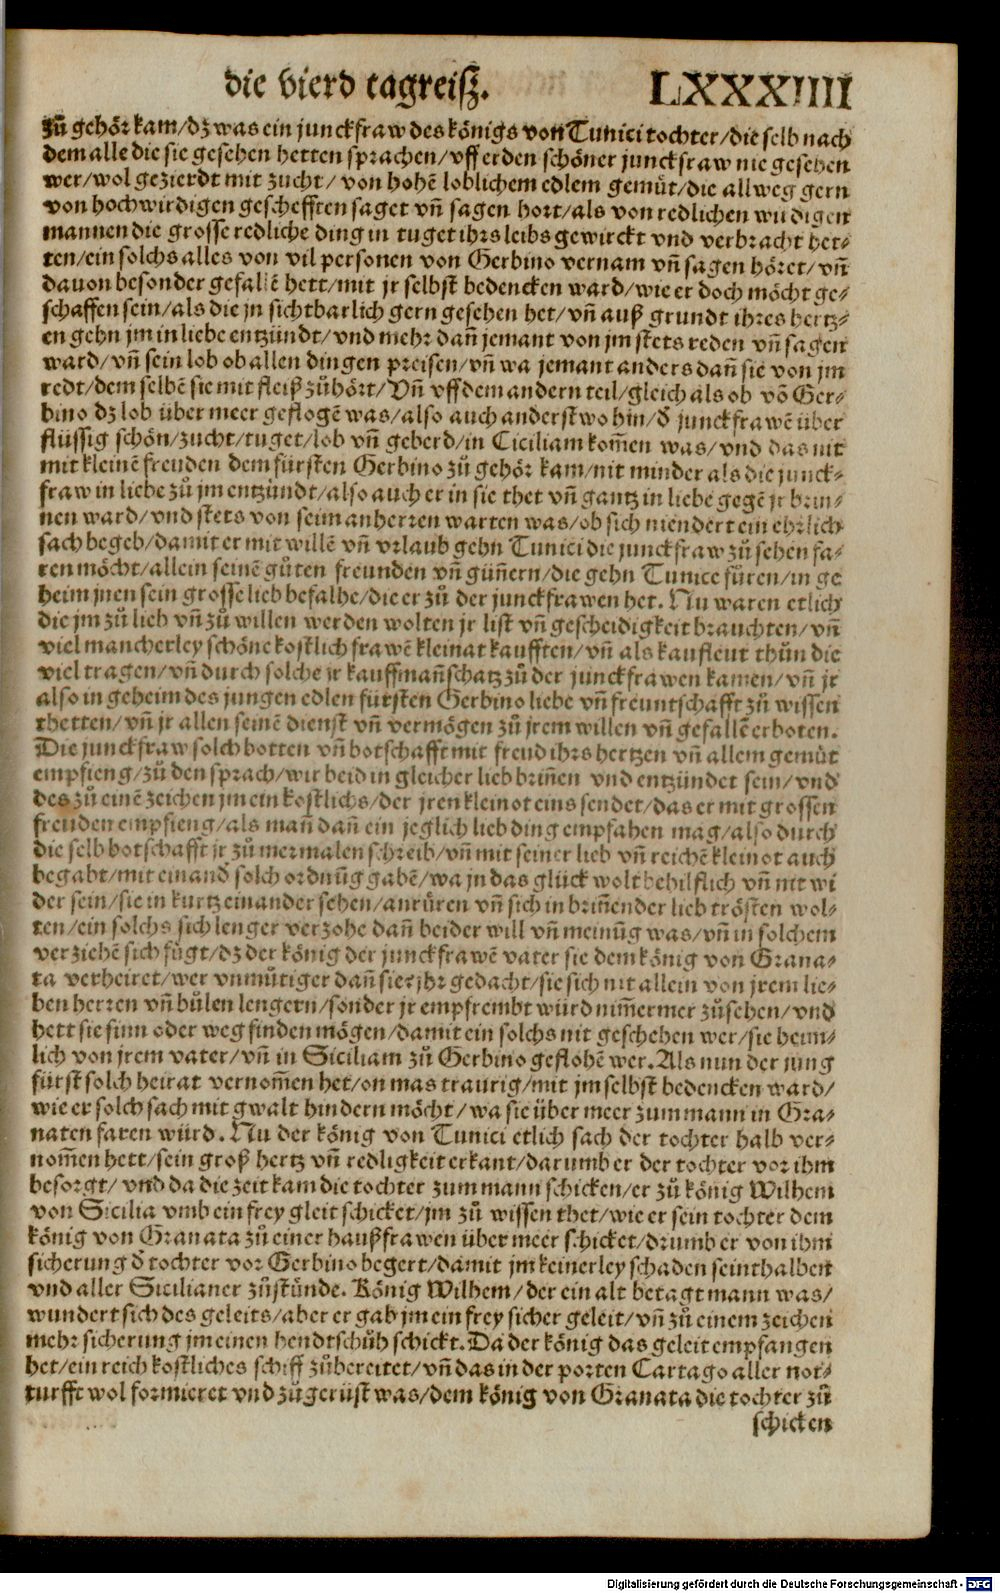 die vierd tagreisz. LXXXIIII
zů gehör kam/dz was ein junckfraw des königs von Tunici tochter/die selb nach
dem alle die sie gesehen hetten sprachen/vff erden schöner junckfraw nie gesehen
wer/wol gezierdt mit zucht/ von hohē loblichem edlem gemüt/die allweg gern
von hochwirdigen geschefften saget vñ sagen hort/als von redlichen wirdigen
mannen die grosse redliche ding in tuget ihrs leibs gewirckt vnd verbracht het⸗
ten/ein solchs alles von vil personen von Gerbino vernam vñ sagen höret/vñ
dauon besonder gefallē hett/mit jr selbst bedencken ward/wie er doch möcht ge⸗
schaffen sein/als die jn sichtbarlich gern gesehen het/vñ auß grundt ihres hertz⸗
en gehn jm in liebe entzündt/vnd mehr dañ jemant von jm stets reden vñ sagen
ward/vñ sein lob ob allen dingen preisen/vñ wa jemant anders dañ sie von jm
redt/dem selbē sie mit fleiß zůhört/Vñ vff dem andern teil/gleich als ob vō Ger⸗
bino dz lob über meer geflogē was/also auch anderst wo hin/ď junckfrawē über
flüssig schön/zucht/tuget/lob vñ geberd/in Ciciliam kom̃en was/vnd das nit
mit kleinē freuden dem fürsten Gerbino zů gehör kam/nit minder als die junck⸗
fraw in liebe zů jm entzündt/also auch er in sie thet vñ gantz in liebe gegē jr brin⸗
nen ward/vnd stets von seim anherren warten was/ob sich niendert ein ehrlich
sach begeb/damit er mit willē vñ vrlaub gehn Tunici die junckfraw zů sehen fa⸗
ren möcht/allein seinē gůten freunden vñ güñern/die gehn Tunice füren/in ge
heim jnen sein grosse lieb befalhe/die er zů der junckfrawen het. Nu waren etlich
die jm zů lieb vñ zů willen werden wolten jr list vñ gescheidigkeit brauchten/vñ
viel mancherley schöne kostlich frawē kleinat kaufften/vñ als kaufleut thůn die
viel tragen/vñ durch solche jr kauffmañschatz zů der junckfrawen kamen/vñ jr
also in geheim des jungen edlen fürsten Gerbino liebe vñ freuntschafft zů wissen
thetten/vñ jr allen seinē dienst vñ vermögen zů jrem willen vñ gefallē erboten.
Die junckfraw solch botten vñ botschafft mit freud ihrs hertzen vñ allem gemüt
empfieng/zů den sprach/wir beid in gleicher lieb briñen vnd entzündet sein/vnd
des zů einē zeichen jm ein kostlichs/der jren kleinot eins sendet/das er mit grossen
freuden empfieng/als mañ dañ ein jeglich lieb ding empfahen mag/also durch
die selb botschafft jr zů mermalen schreib/vñ mit seiner lieb vñ reichē kleinot auch
begabt/mit einanď solch ordnũg gabē/wa jn das glück wolt behilflich vñ nit wi
der sein/sie in kurtz einander sehen/anrüren vñ sich in briñender lieb trösten wol⸗
ten/ein solchs sich lenger verzohe dañ beider will vñ meinũg was/vñ in solchem
verziehē sich fügt/dz der könig der junckfrawē vater sie dem könig von Grana⸗
ta verheiret/wer vnmůtiger dañ sie? jhr gedacht/sie sich nit allein von jrem lie⸗
ben herren vñ bůlen lengern/sonder jr empfrembt würd nim̃ermer zůsehen/vnd
hett sie sinn oder weg finden mögen/damit ein solchs nit geschehen wer/sie heim⸗
lich von jrem vater/vñ in Siciliam zů Gerbino geflohē wer. Als nun der jung
fürst solch heirat vernom̃en het/on mas traurig/mit jm selbst bedencken ward/
wie er solch sach mit gwalt hindern möcht/wa sie über meer zum mann in Gra⸗
naten faren würd. Nu der könig von Tunici etlich sach der tochter halb ver⸗
nom̃en hett/sein groß hertz vñ redligkeit erkant/darumb er der tochter vor ihm
besorgt/ vnd da die zeit kam die tochter zum mann schicken/er zů könig Wilhem
von Sicilia vmb ein frey gleit schicket/jm zů wissen thet/wie er sein tochter dem
könig von Granata zů einer haußfrawen über meer schicket/drumb er von ihm
sicherung ď tochter vor Gerbino begert/damit jm keinerley schaden seinthalben
vnd aller Sicilianer zůstünde. König Wilhem/der ein alt betagt mann was/
wundert sich des geleits/aber er gab jm ein frey sicher geleit/vñ zů einem zeichen
mehr sicherung jm einen hendtschůh schickt. Da der könig das geleit empfangen
het/ein reich kostliches schiff zůbereitet/vñ das in der porten Cartago aller not⸗
turfft wol formieret vnd zůgerüst was/dem könig von Granata die tochter zů
schicken
Digitalisierung gefördert durch die Deutsche Forschungsgemeinschaft - DFG